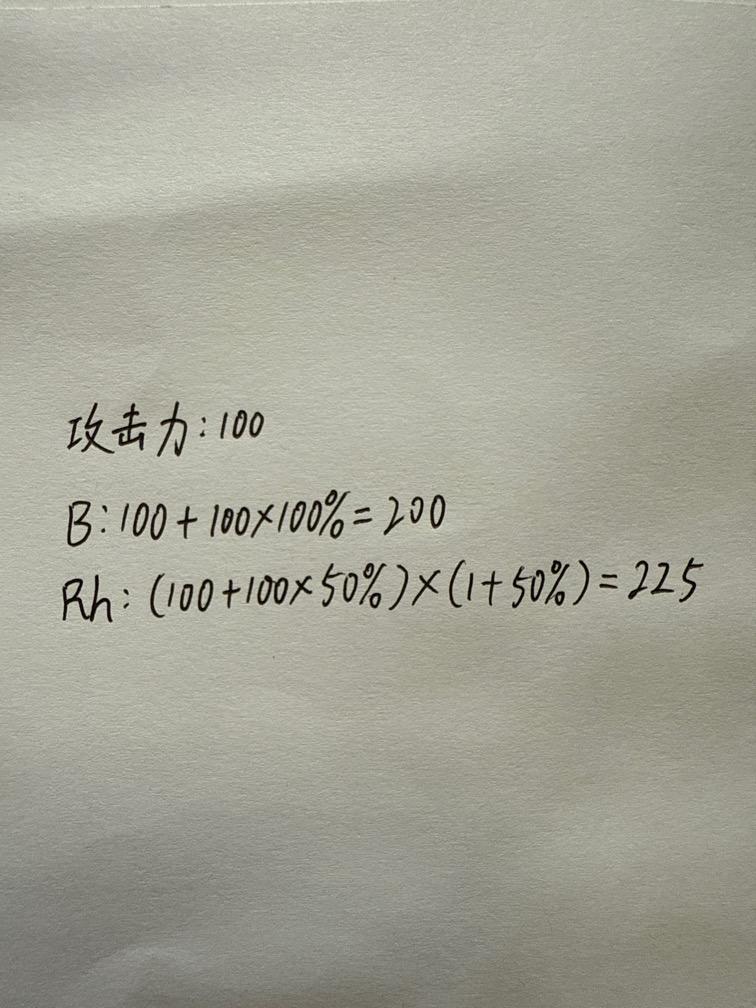 攻击力:100
B:100+100×100%=200
Rh:(100+100×50%)×(1+50%)=225